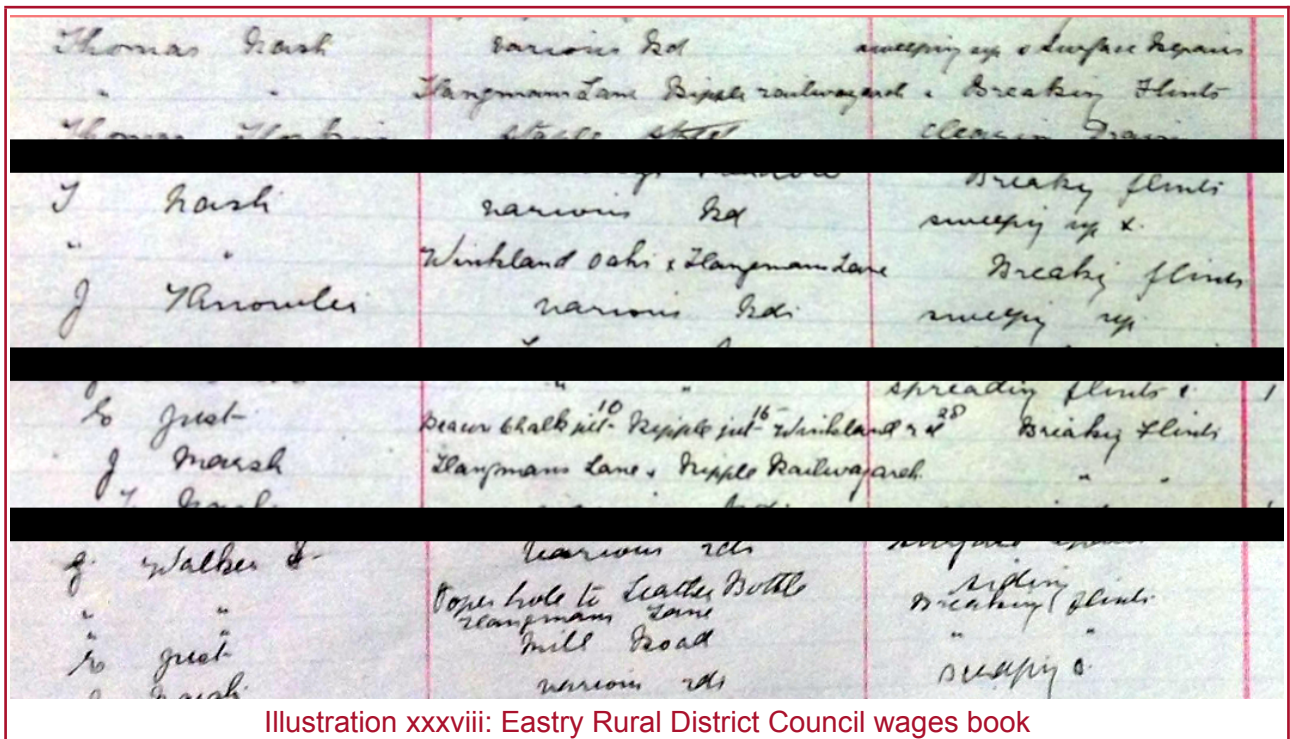 Thomas Nash various Rd sweeping up & Surface Repairs
" " Hangmans Lane Ripple railway arch & Breaking Flints
Thomas staple
Breaking flints
T Nash various Rd sweeping up &
" " Winkland Oaks & Hangmans Lane Breaking flints
J Knowles various Rds sweeping up
" " spreading flints &
E Just Chalk pit 10 Ripple pit 16 Winkland rd 28 Breaking Flints
J Marsh Hangmans Lane & Ripple Railway arch " "
T Nash
J Walker various rds
" " Popes hole to Leather Bottle siding
" " Hangmans Lane Breaking flints
E Just Mill Road " "
various rds sweeping &
Illustration xxxviii: Eastry Rural District Council wages book